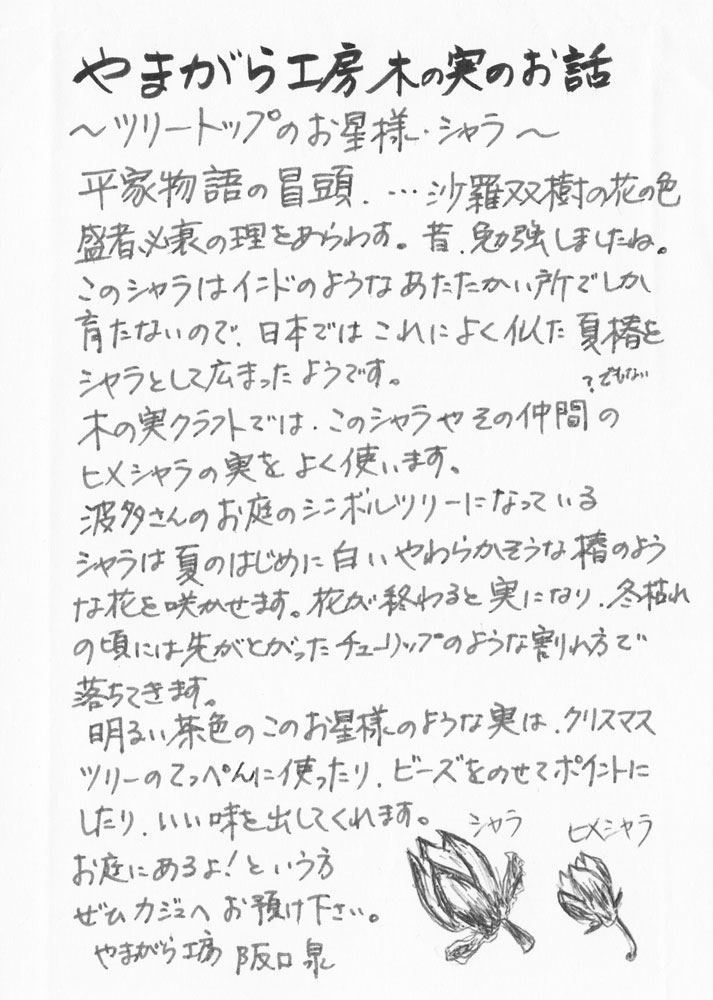 やまがら工房 木の実のお話
～ツリートップのお星様・シャラ～
平家物語の冒頭、…沙羅双樹の花の色
盛者必衰の理をあらわす。昔、勉強しましたね。
このシャラはインドのようなあたたかい所でしか
育たないので、日本ではこれによく似た夏椿を
シャラとして広まったようです。
？でもない
木の実クラフトでは、このシャラやその仲間の
ヒメシャラの実をよく使います。
波多さんのお庭のシンボルツリーになっている
シャラは夏のはじめに白いやわらかそうな椿のよう
な花を咲かせます。花が終わると実になり、冬枯れ
の頃には先がとがったチューリップのような割れ方で
落ちてきます。
明るい茶色のこのお星様のような実は、クリスマス
ツリーのてっぺんに使ったり、ビーズをのせてポイントに
したり、いい味を出してくれます。
シャラ
ヒメシャラ
お庭にあるよ！という方
ぜひカジュへお預け下さい。
やまがら工房 阪口泉